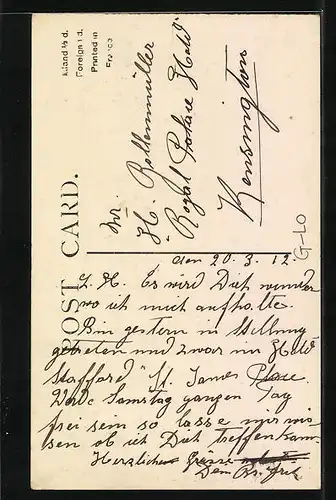 Inland ½ d.
Foreign 1 d.
Printed in
France
POST CARD.
Mr.
H. Bollenmüller
"Royal Palace Hotel"
Kensington
G-LO
den 20. 3. 12.
L. H. Es wird Dich wundern
wo ich mich aufhalte.
Bin gestern in Stellung
getreten und zwar im Hotel
Stafford "St. James Place.
Werde Samstag ganzen Tag
frei sein so lasse mir wis
sen ob ich Dich treffen kann.
Herzliche Grüsse
Dein